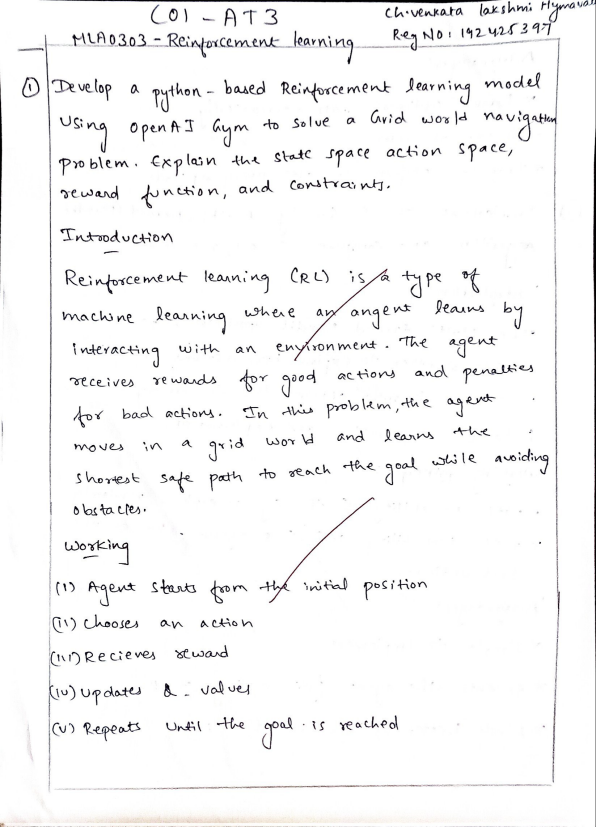 CO1 - AT3
Ch.venkata lakshmi Hymavathi
MLA0303 - Reinforcement learning
Reg No: 192425397
① Develop a python - based Reinforcement learning model
Using OpenAI Gym to solve a Grid world navigation
problem. Explain the state space action space,
reward function, and constraints.
Introduction
Reinforcement learning (RL) is a type of
machine learning where an angent learns by
interacting with an environment. The agent
receives rewards for good actions and penalties
for bad actions. In this problem, the agent
moves in a grid world and learns the
shortest safe path to reach the goal while avoiding
obstacles.
Working
(i) Agent starts from the initial position
(ii) Chooses an action
(iii) Recieves reward
(iv) Updates Q - values
(v) Repeats until the goal is reached